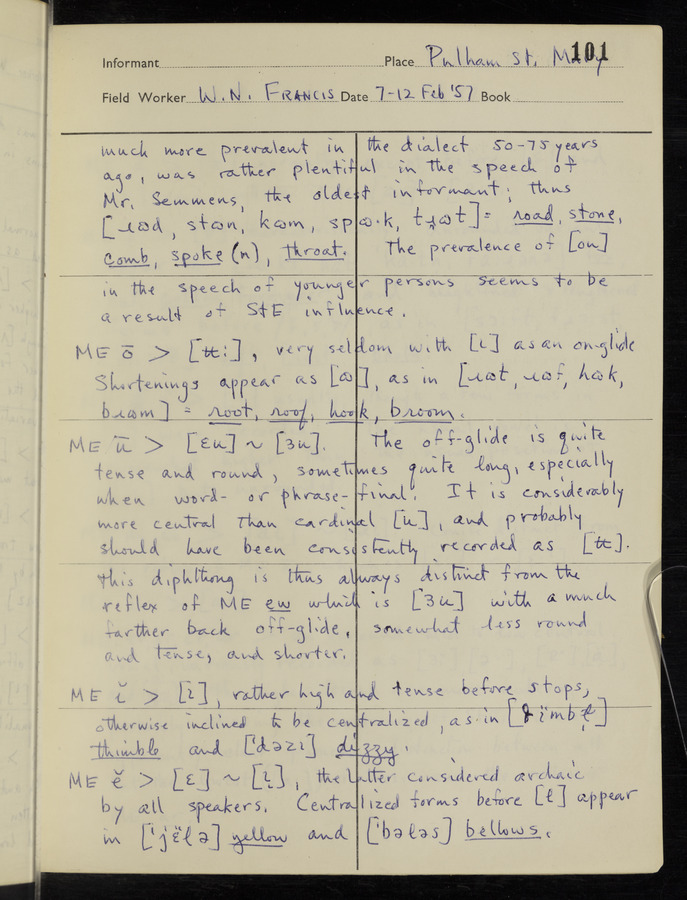 101
Informant Place Pulham St. Mary
Field Worker W. N. FRANCIS Date 7-12 Feb '57 Book
much more prevalent in the dialect 50-75 years
ago, was rather plentiful in the speech of
Mr. Semmens, the oldest informant; thus
[ɹɷd, stɷn, kɷm, spɷ·k, tɹ̥ɷt] = road, stone,
comb, spoke (n), throat. The prevalence of [ou]
in the speech of younger persons seems to be
a result of StE influence.
ME ō > [ʉː], very seldom with [ɩ] as an on-glide
Shortenings appear as [ɷ], as in [ɹɷt, ɹɷf, hɷk,
bɹɷm] = root, roof, hook, broom.
ME ū > [ɛu] ~ [ɜu]. The off-glide is quite
tense and round, sometimes quite long, especially
when word- or phrase-final. It is considerably
more central than cardinal [u], and probably
should have been consistently recorded as [ʉ].
this diphthong is thus always distinct from the
reflex of ME ew which is [ɜu] with a much
farther back off-glide, somewhat less round
and tense, and shorter.
ME ĭ > [ɩ], rather high and tense before stops,
otherwise inclined to be centralized, as in
thimble and ['dəzɩ] dizzy.
ME ĕ > [ɛ] ~ [ɩ], the latter considered archaic
by all speakers. Centralized forms before [ɫ] appear
in ['jɛ̈ɫə] yellow and ['bəɫəs] bellows.